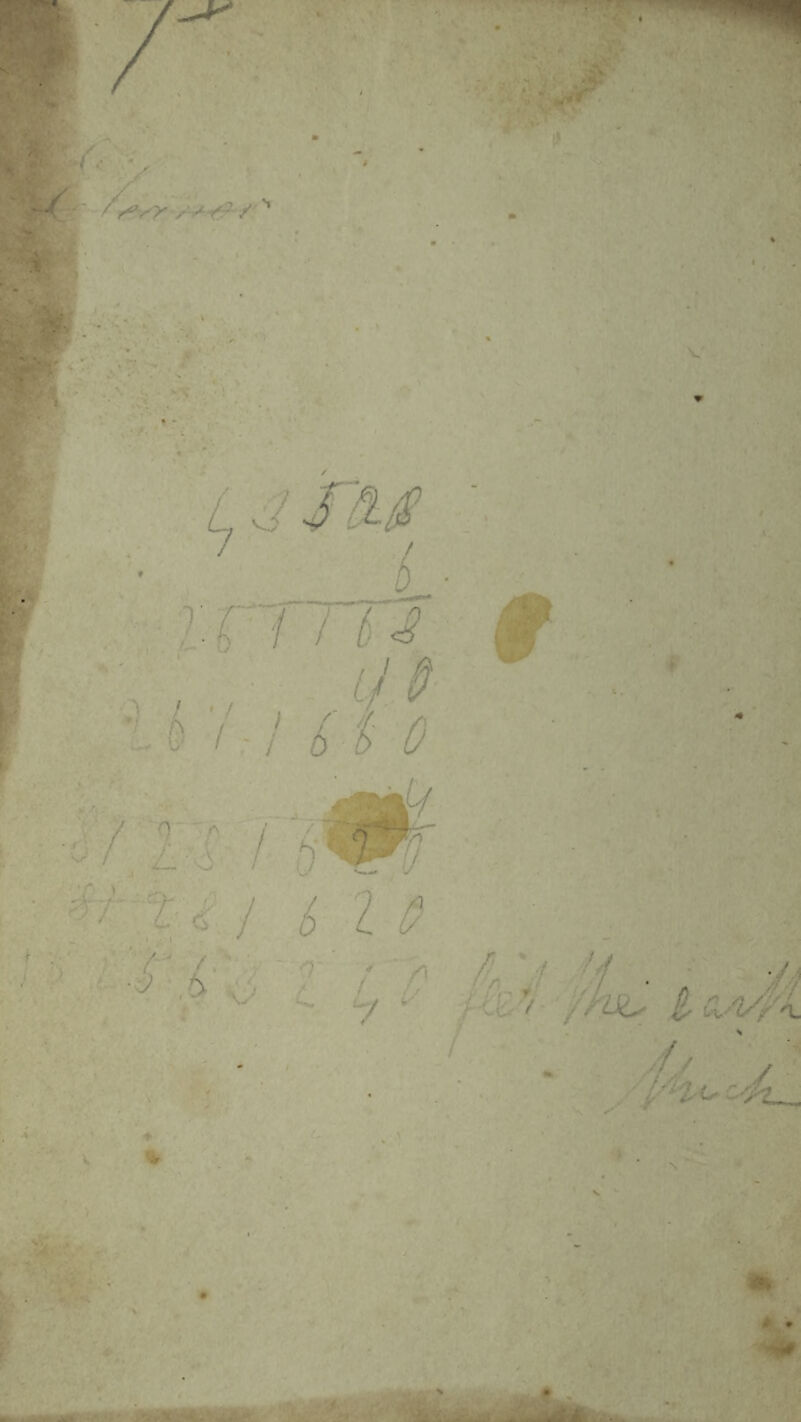 Eleanor
43528
6
261168
40
2611660
4
81281620
81281620
162563240 feet the earth
thick